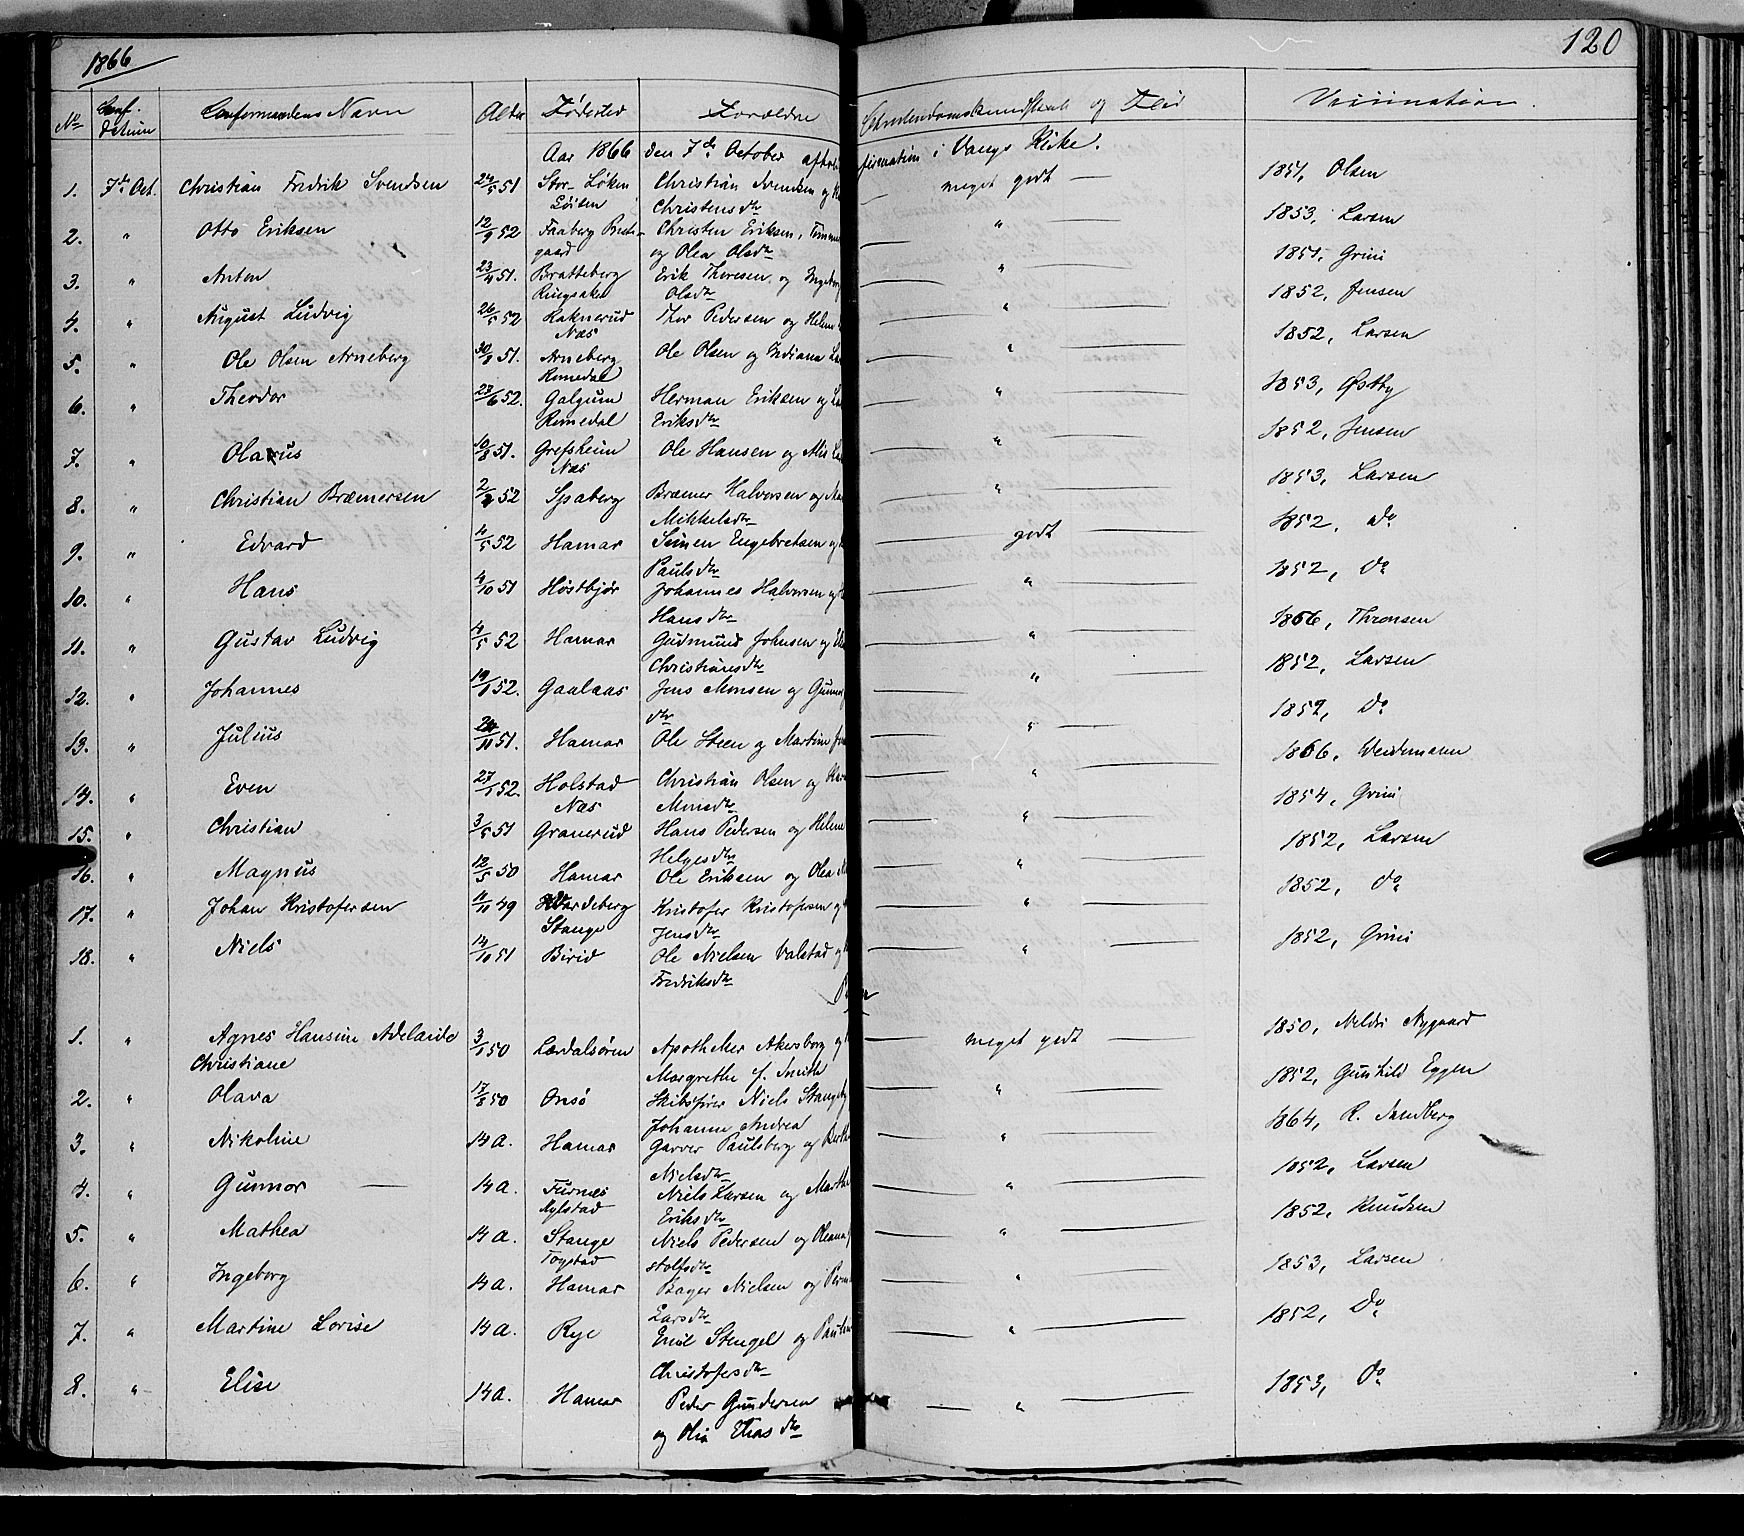 1866
120
No. Conf. datum Konfirmandens Navn Alder Fødested Forældre Christendomskundskab og Flid Vaccination.
Aar 1866 den 7de October i Vangs Kirke.
1. 7de Oct. Christian Fredrik Svendsen 24/5 51 Stor-Løken Christian Svendsen og — meget godt — 1851, Olsen
Løiten Christensdtr
2. " Otto Eriksen 12/9 52 Faaberg Preste- Christen Eriksen, — " — 1853, Larsen
gaard og Olea Olsdtr
3. " Anton 23/4 51. Bratteberg Erik Thoresen og Ingeborg — " — 1851, Grini
Ringsaker Olsdtr
4. " August Ludvig 26/5 52 Raknerud Thor Pedersen og Helene — " — 1852, Jensen
Næs
5. " Ole Olsen Arneberg 30/8 51. Arneberg Ole Olsen og Indiana — " — 1852, Larsen
Romedal
6. " Theodor 27/6 52. Galgum Herman Eriksen og — " — 1853, Østby
Romedal Eriksdtr
7. " Olaus 10/8 51. Grefsheim Ole Hansen og — " — 1852, Jensen
Næs
8. " Christian Bræmersen 2/2 52 Spaberg Bræmer Halvorsen og — " — 1853, Larsen
Mikkelsdtr
9. " Edvard 4/5 52 Hamar Simen Engebretsen og — godt — 1852, do
Paulsdtr
10. " Hans 4/10 51 Høstbjør Johannes Halvorsen og — " — 1852, do
Hansdtr
11. " Gustav Ludvig 4/5 52 Hamar Gudmund Johnsen og — " — 1866, Thronsen
Christiansdtr
12. " Johannes 19/1 52. Gaalaas Jens Monsen og — " — 1852, Larsen
dtr
13. " Julius 24/11 51. Hamar Ole Steen og Martine — " — 1852, Do
14. " Even 27/1 52. Holstad Christian Olsen og — " — 1866, Weidemann
Næs Monsdtr
15. " Christian 3/5 51 Granerud Hans Pedersen og Helene — " — 1854, Grini
Helgesdtr
16. " Magnus 12/5 50 Hamar Ole Eriksen og Olea — " — 1852, Larsen
17. " Johan Kristofersen 4/11 49 Vardeberg Kristofer Kristofersen og — " — 1852, do
Stange Jensdtr
18. " Niels 14/10 51 Birid Ole Nielsen Valstad og — " — 1852, Grini
Fredriksdtr
1. " Agnes Hansine Adelaide 3/1 50 Lærdalsøren Apotheker Akersborg og — meget godt — 1850, Nygaard
Christiane Margrethe f. Smith
2. " Olava 17/8 50 Onsø Skibsfører Niels — " — 1852, Gunhild Eggen
Johanne Andrea
3. " Nikoline 14 A. Hamar Garver Paulsberg og — " — 1864, R. Sandberg
Nielsdtr
4. " Gunnor — 14 A. Furnes Niels Larsen og Marthe — " — 1852, Larsen
Nylstad Eriksdtr
5. " Mathea 14 A. Stange Niels Pedersen og — " — 1852, Knudsen
Togstad stolfsdtr
6. " Ingeborg 14 A. Hamar Bager Nielsen og — " — 1853, Larsen
Larsdtr
7. " Martine Lovise 14 A. Rye Emil Stengel og — " — 1852, Do
Christofersdtr
8. " Elise 14 A. Hamar Peder Gundersen — " — 1853, do
og Olia Eliasdtr